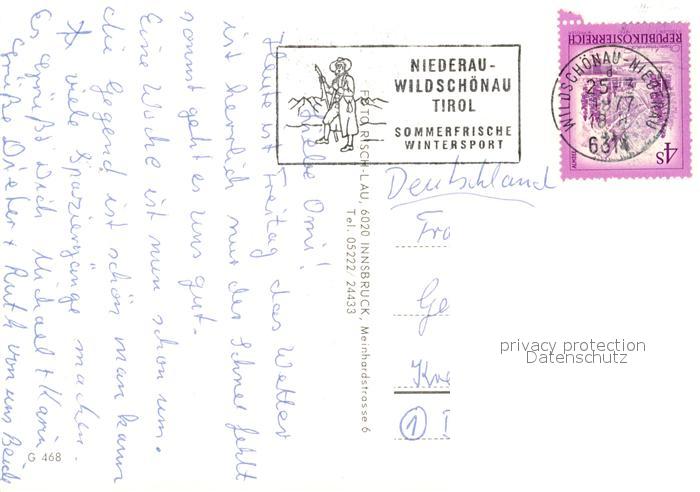 Liebe Omi!
Heute ist Freitag das Wetter
ist herrlich nur der Schnee fehlt
sonst geht es uns gut.
Eine Woche ist nun schon um.
die Gegend ist schön man kann
viele Spaziergänge machen.
Es grüßt Dich Michael + Karin
Grüße Dieter + Ruth von uns Beide
G 468
FOTO RISCH-LAU, 6020 INNSBRUCK, Meinhardstrasse 6
Tel. 05222/24433
NIEDERAU-
WILDSCHÖNAU
TIROL
SOMMERFRISCHE
WINTERSPORT
WILDSCHÖNAU-NIEDERAU
6314
REPUBLIK ÖSTERREICH
4S
Deutschland
Fra
Ge
①
privacy protection
Datenschutz